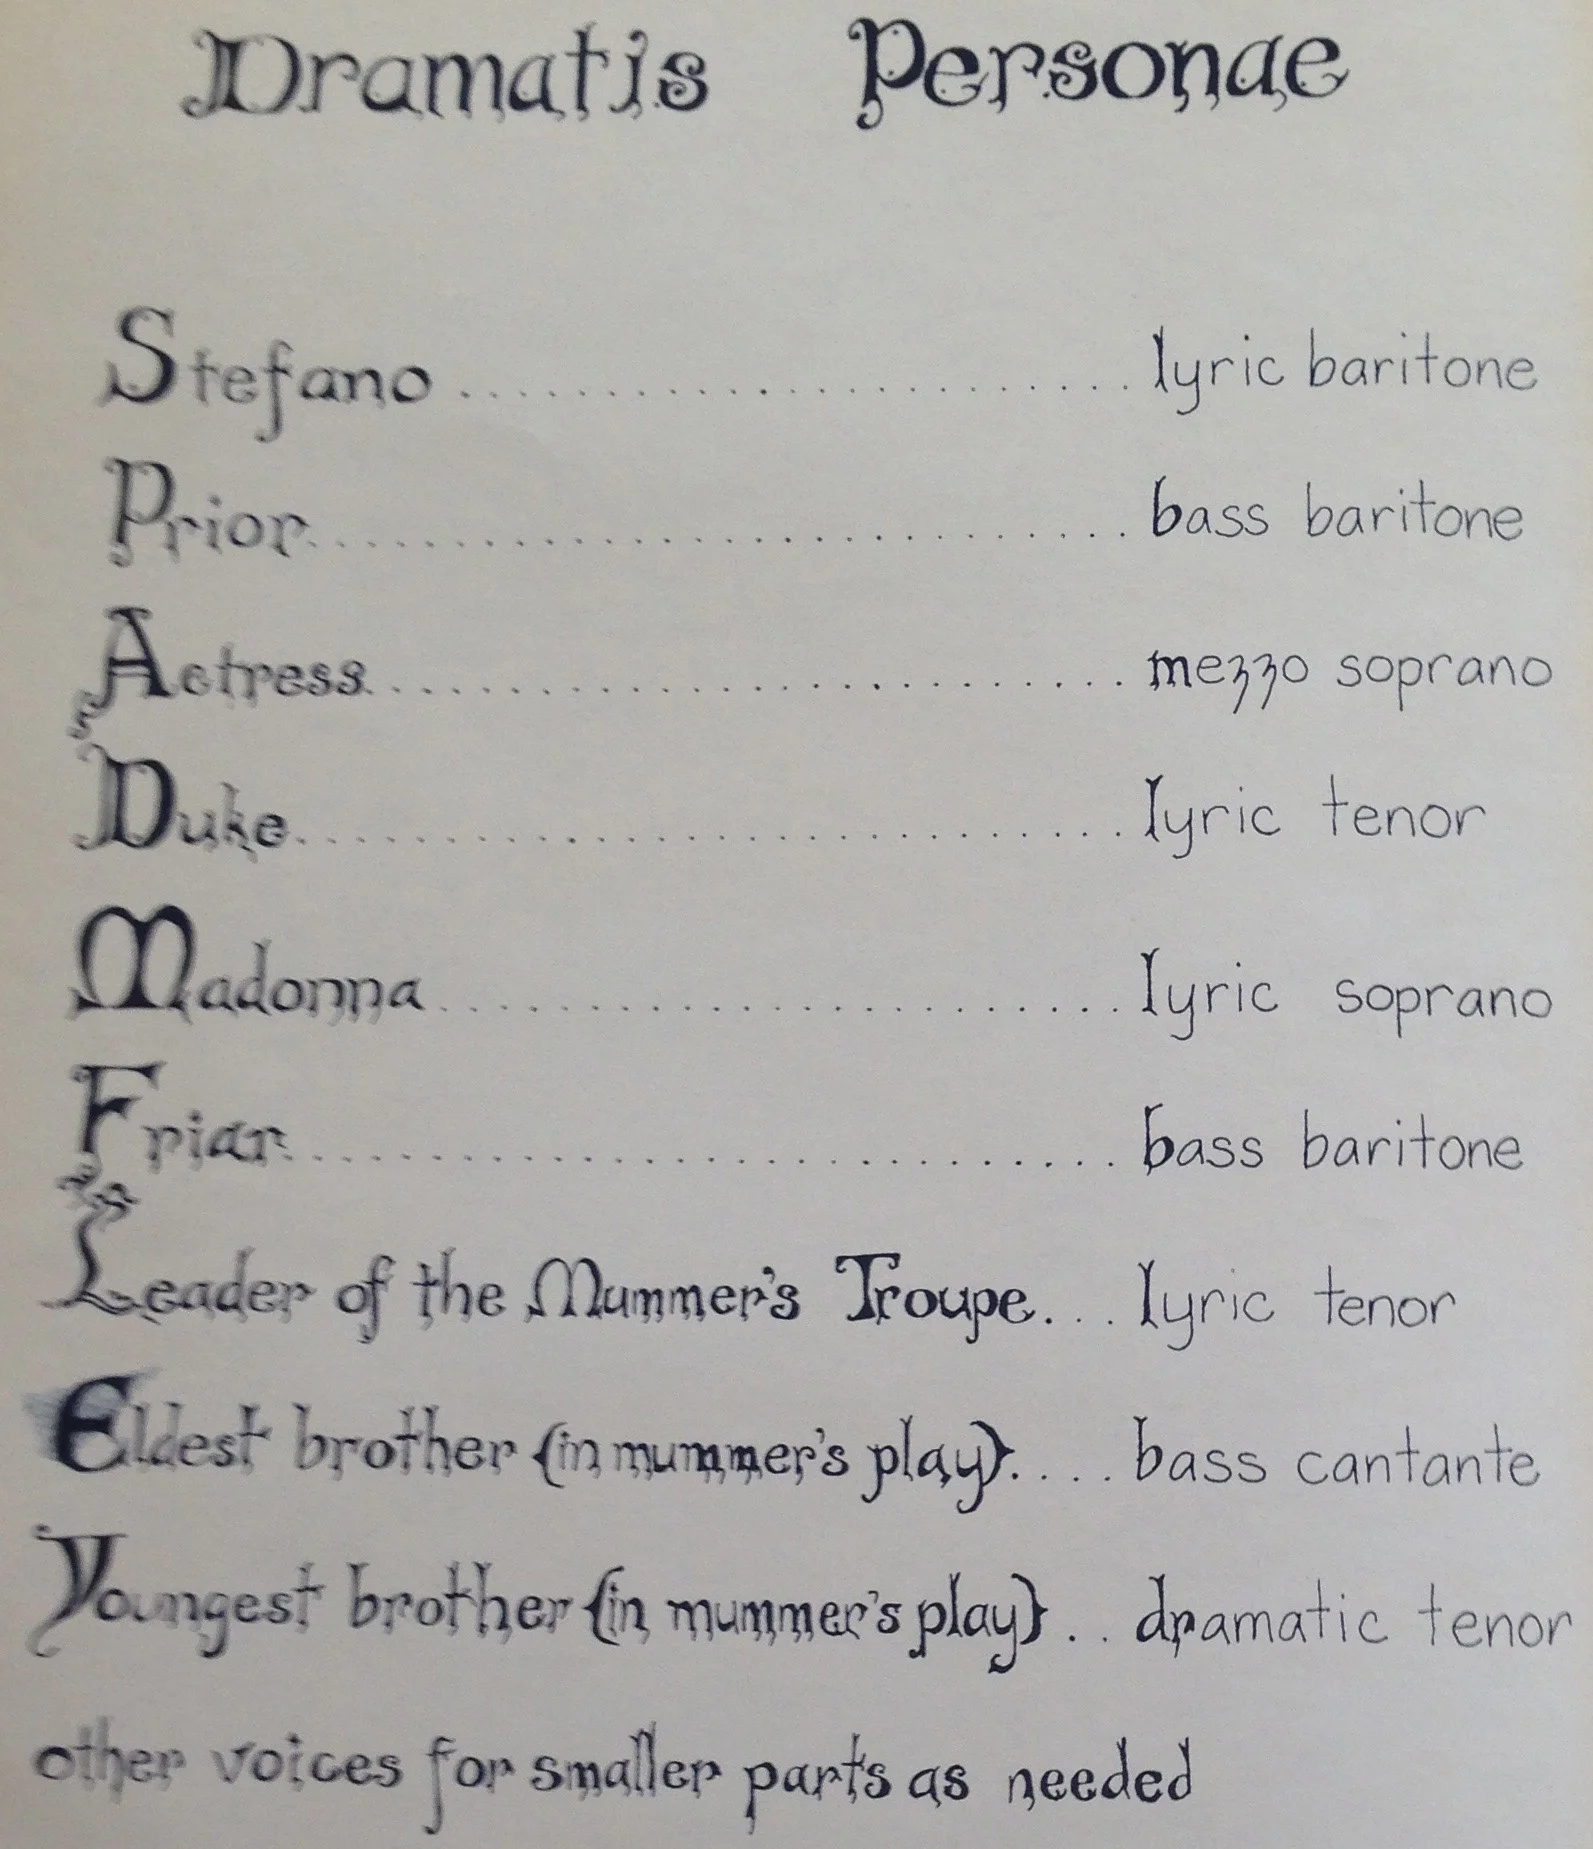 Dramatis Personae
Stefano .......................... lyric baritone
Prior .............................. bass baritone
Actress .......................... mezzo soprano
Duke .............................. lyric tenor
Madonna ........................ lyric soprano
Friar .............................. bass baritone
Leader of the Mummer's Troupe... lyric tenor
Eldest brother {in mummer's play}.... bass cantante
Youngest brother {in mummer's play}.. dramatic tenor
other voices for smaller parts as needed